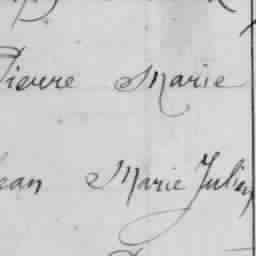 Pierre Marie
Jean Marie Julien